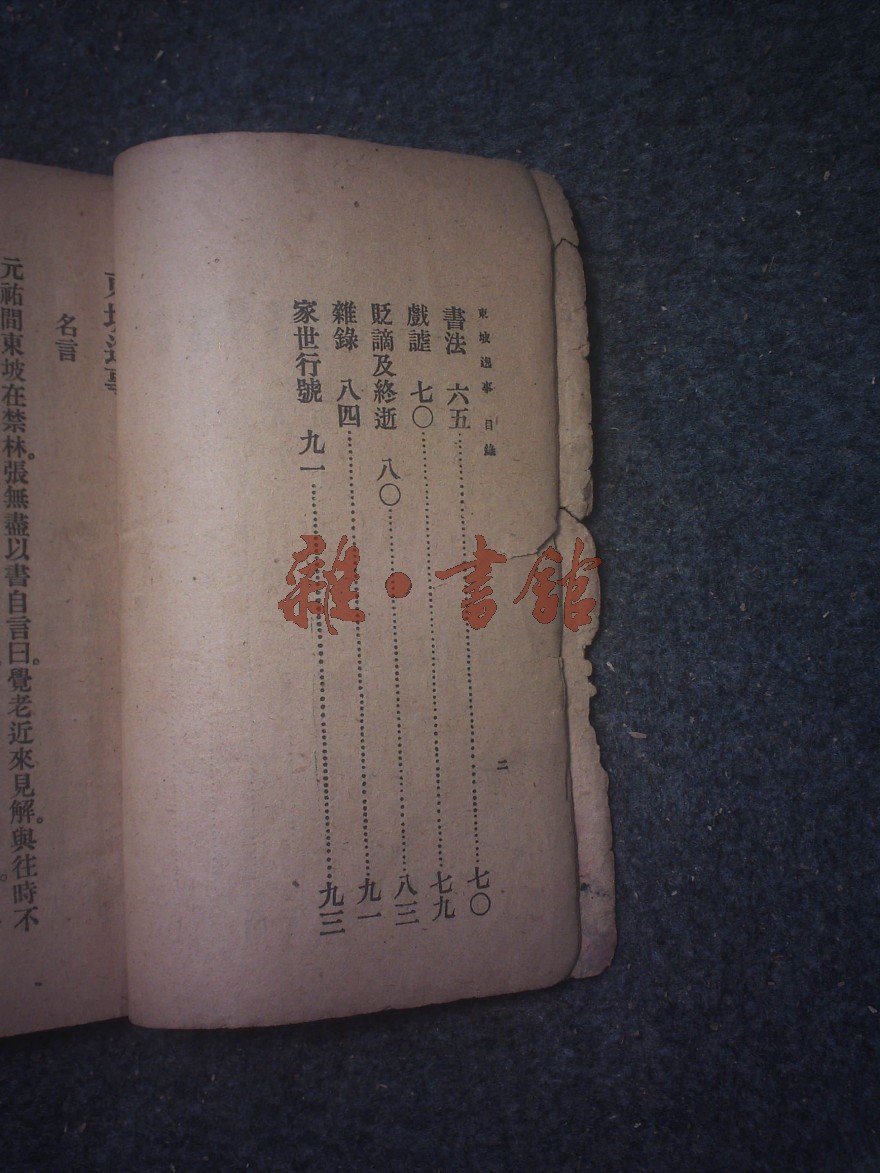 東坡逸事 目錄 二
書法 六五……七〇
戲謔 七〇……七九
貶謫及終逝 八〇……八三
雜錄 八四……九一
家世行號 九一……九三
東坡逸事
名言
元祐間東坡在禁林。張無盡以書自言曰。覺老近來見解。與往時不
雜·書館